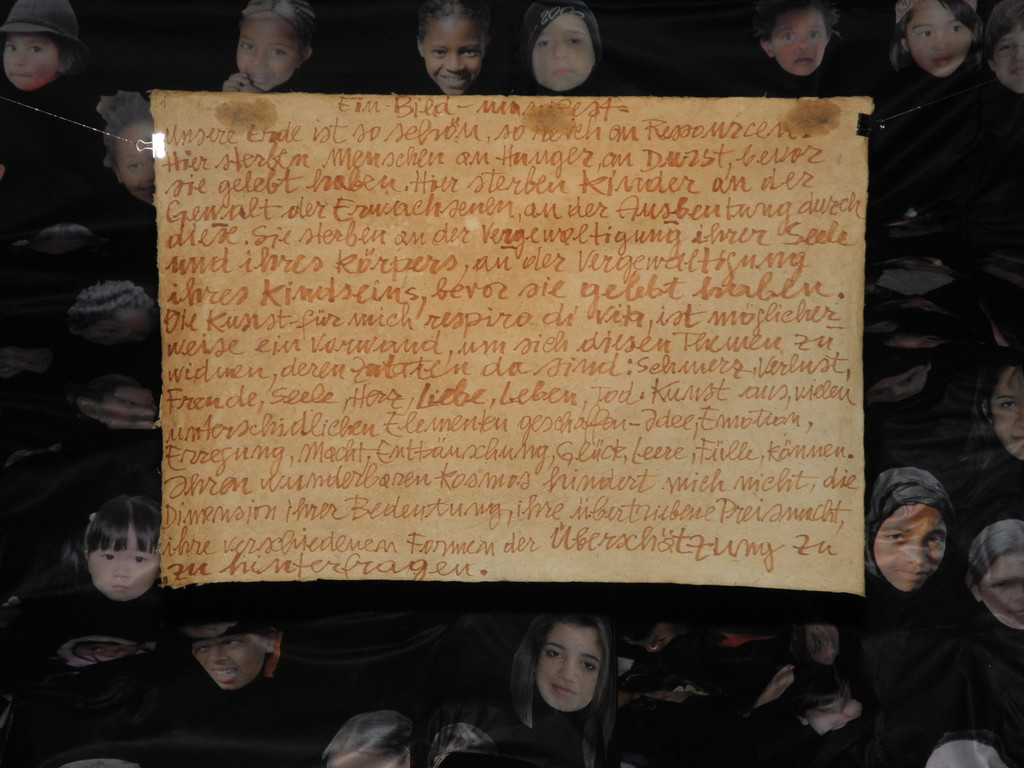 Ein-Bild-manifest-
Unsere Erde ist so schön, so reich an Ressourcen.
Hier sterben Menschen an Hunger, an Durst, bevor
sie gelebt haben. Hier sterben Kinder an der
Gewalt der Erwachsenen, an der Ausbeutung durch
diese. Sie sterben an der Vergewaltigung ihrer Seele
und ihres Körpers, an der Vergewaltigung
ihres Kindseins, bevor sie gelebt haben.
Die Kunst-für mich respiro di vita, ist möglicher
weise ein Vorwand, um sich diesen Themen zu
widmen, deren Zutaten da sind: Schmerz, Verlust,
Freude, Seele, Herz, Liebe, Leben, Tod. Kunst aus vielen
unterschidlichen Elementen geschaffen-Idee, Emotion,
Erregung, Macht, Enttäuschung, Glück, Leere, Fülle, Können.
Ihren wunderbaren Kosmos hindert mich nicht, die
Dimension ihrer Bedeutung, ihre übertriebene Preismacht,
ihre verschiedenen Formen der Überschätzung zu
zu hinterfragen.
2002